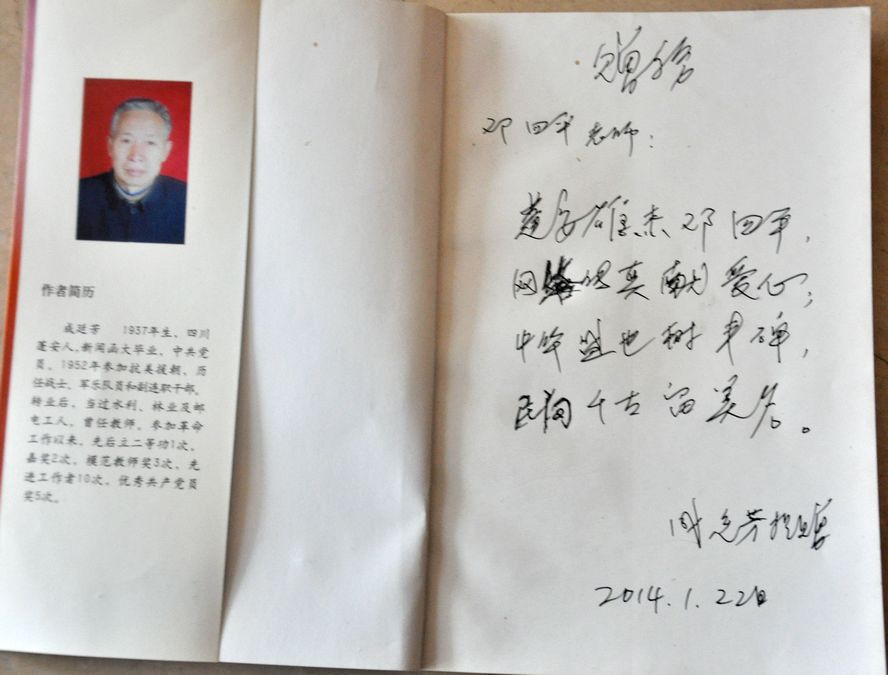 作者简历
成廷芳 1937年生，四川
蓬安人，新闻函大毕业，中共党
员。1952年参加抗美援朝，历
任战士、军乐队员和副连职干部。
转业后，当过水利、林业及邮
电工人，曾任教师。参加革命
工作以来，先后立二等功1次，
嘉奖2次，模范教师奖3次，先
进工作者10次，优秀共产党员
奖5次。
赠给
邓四平老师：
雄杰邓四平，
网 真献爱心；
也树丰碑，
民间千古留美名。
芳 赠
2014.1.22日